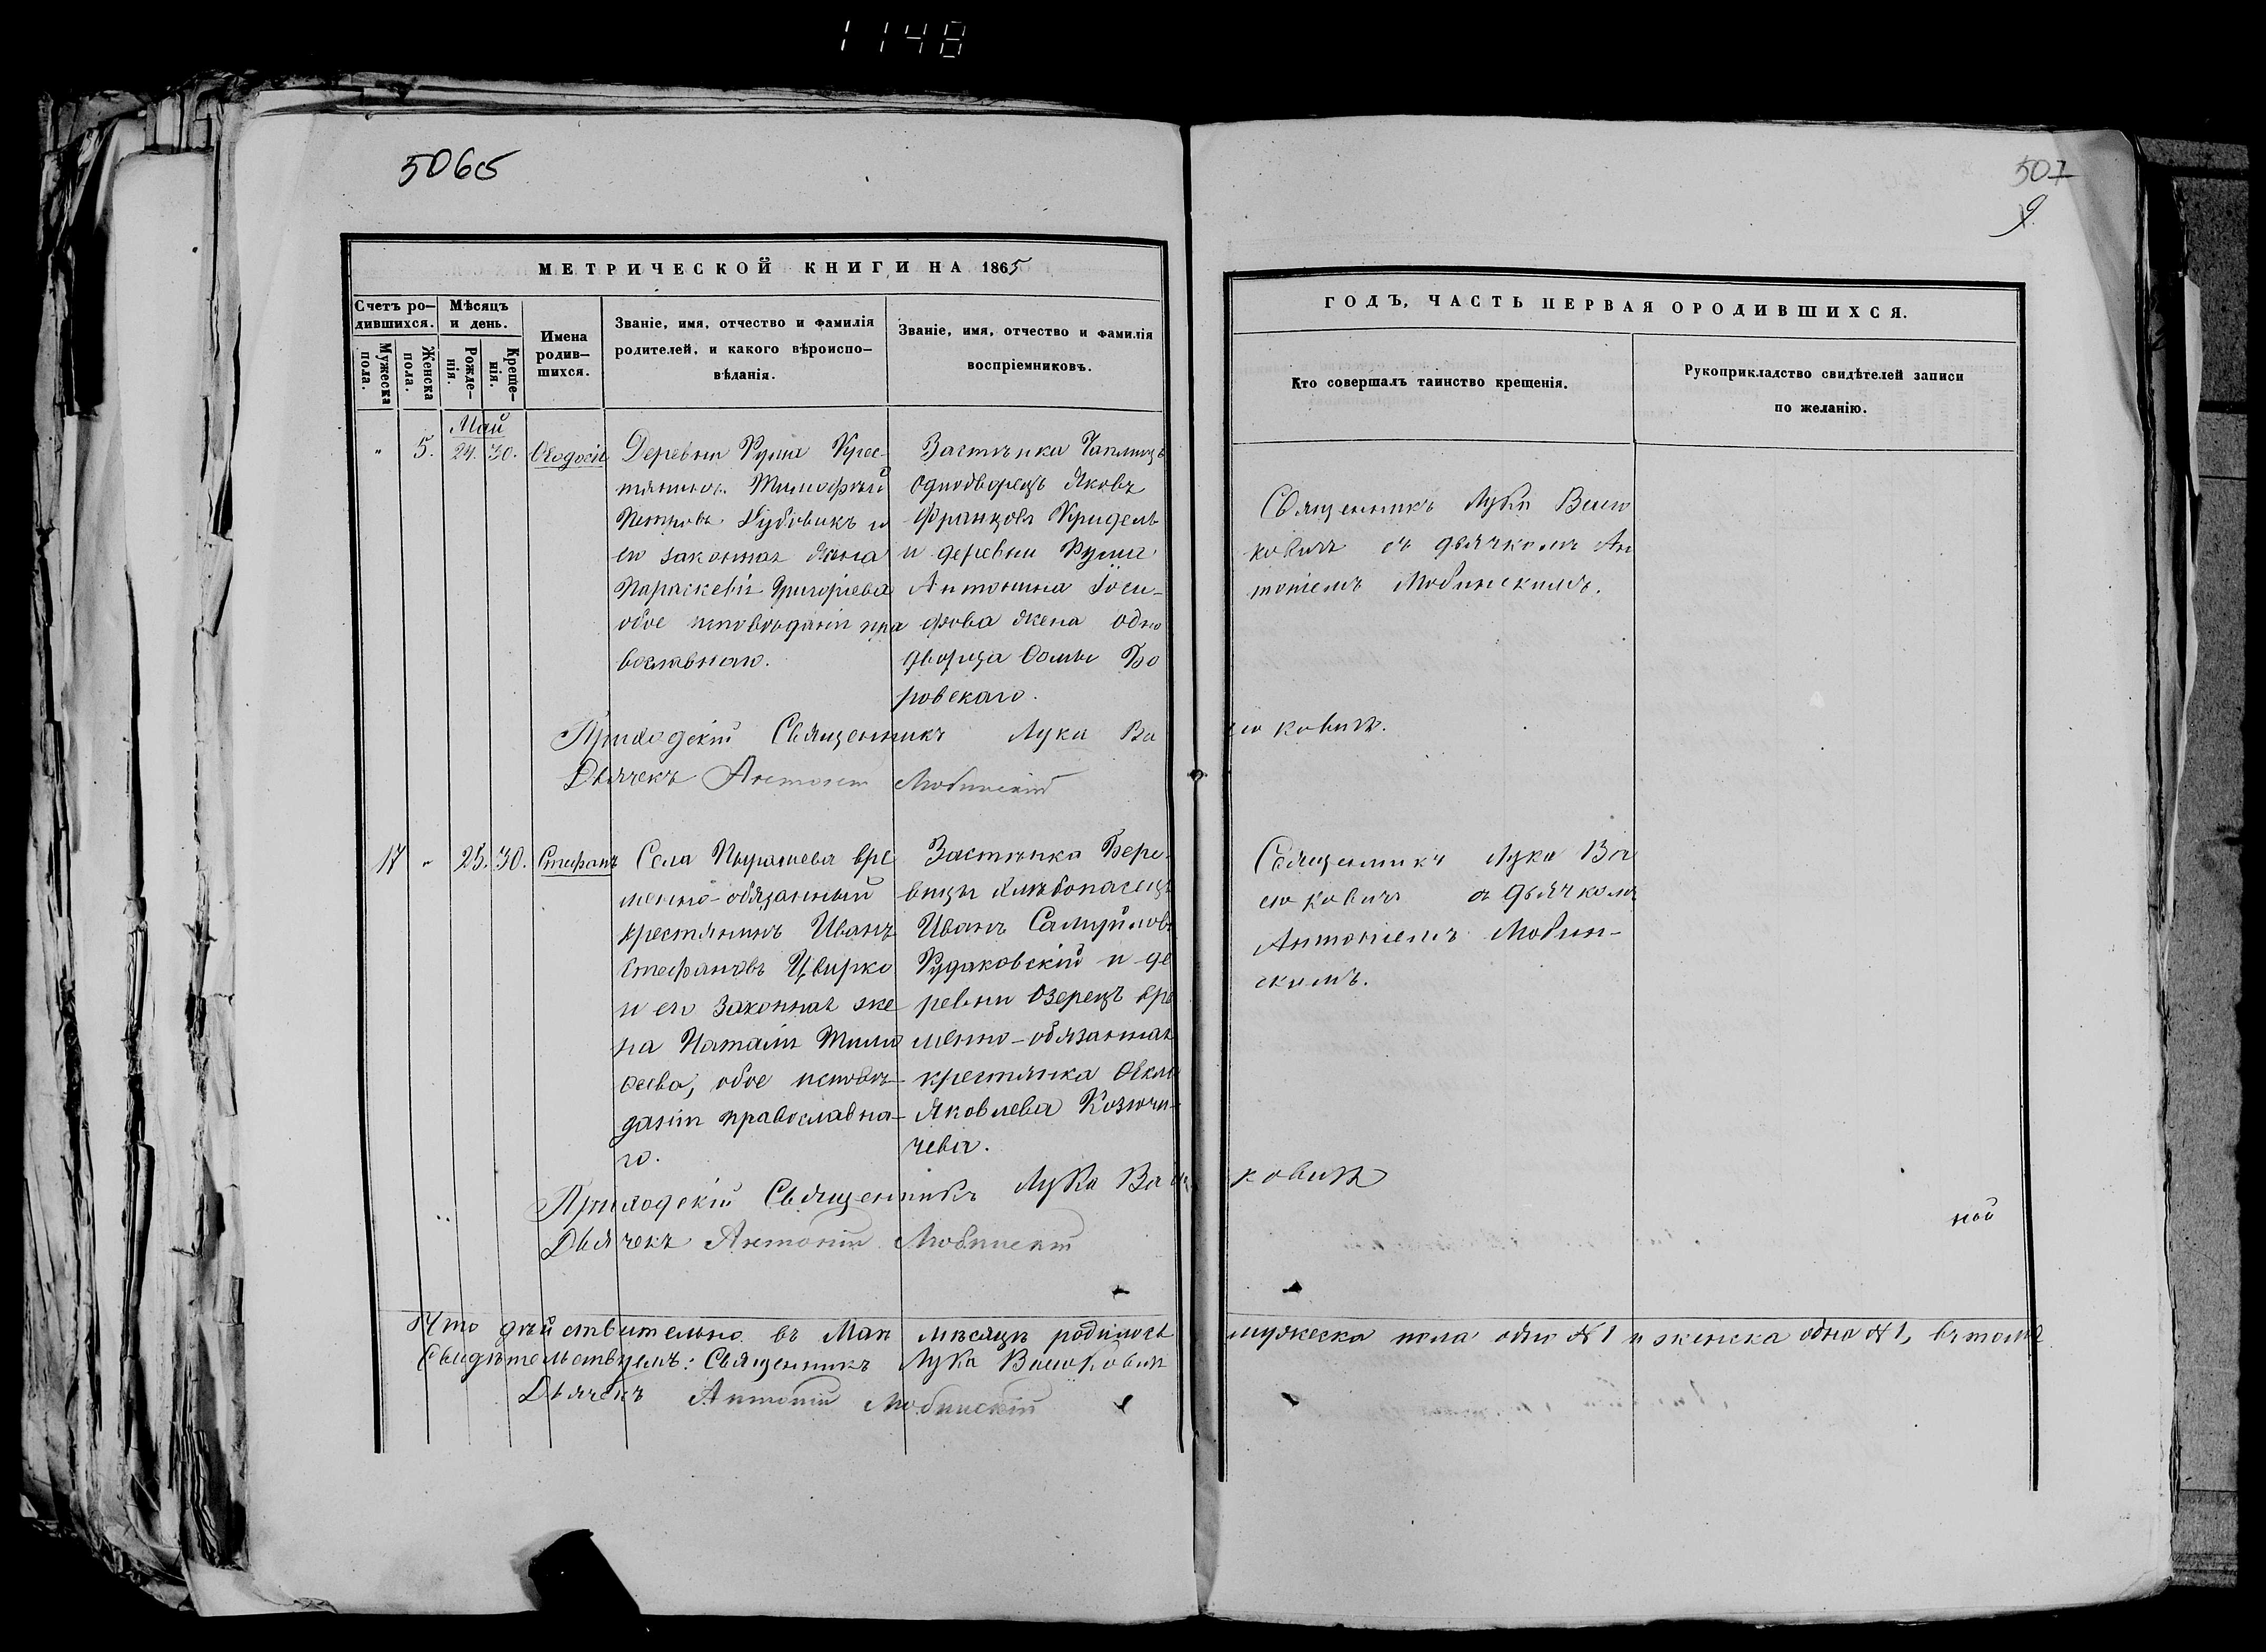 1148
5065
507
9
МЕТРИЧЕСКОЙ КНИГИ НА 1865
ГОДЪ, ЧАСТЬ ПЕРВАЯ О РОДИВШИХСЯ.
Счетъ ро-
дившихся.
Мужеска
пола.
Женска
пола.
Мѣсяцъ
и день.
Рожде-
нія.
Креще-
нія.
Имена
родив-
шихся.
Званіе, имя, отчество и фамилія
родителей, и какого вѣроиспо-
вѣданія.
Званіе, имя, отчество и фамилія
воспріемниковъ.
Кто совершалъ таинство крещенія.
Рукоприкладство свидѣтелей записи
по желанію.
Май
" 5. 24. 30. Ѳеодосія
Деревни Крес-
тянинъ Тимофѣй
Петровъ и
его законная жена
Параскевія Григоріева
обое исповѣданія пра
вославнаго.
Застѣнка
однодворецъ Яковъ
Францовъ
и деревни
Антонина Іоси-
фова жена одно
дворца Ѳомы Бо
ровскаго.
Священникъ Лука
ковичъ съ дьячкомъ Ан
тоніемъ Любинскимъ.
Приходскій Священникъ Лука Ва
сюковичъ.
Дьячекъ Антоній Любинскій
17 " 25. 30. Стефанъ
Села Пырашева вре
менно-обязанный
крестянинъ Иванъ
Стефановъ Цвирко
и его законная же
на Наталія Тимо
ѳеева, обое исповѣ-
данія православна-
го.
Застѣнка Бере-
вицы хлѣбопашецъ
Иванъ Самуйловъ
Рудаковскій и де
ревни Озерецъ вре
менно-обязанная
крестянка
Яковлева
чева.
Священникъ Лука Ва
сюковичъ съ дьячкомъ
Антоніемъ Любин-
скимъ.
Приходскій Священникъ Лука Васю
ковичъ
Дьячекъ Антоній Любинскій
ной
Что дѣйствительно въ Маѣ мѣсяцѣ родилось мужеска пола одно № 1 и женска одно № 1, въ томъ
Свидѣтельствуемъ: Священникъ Лука Васюковичъ
Дьячекъ Антоній Любинскій